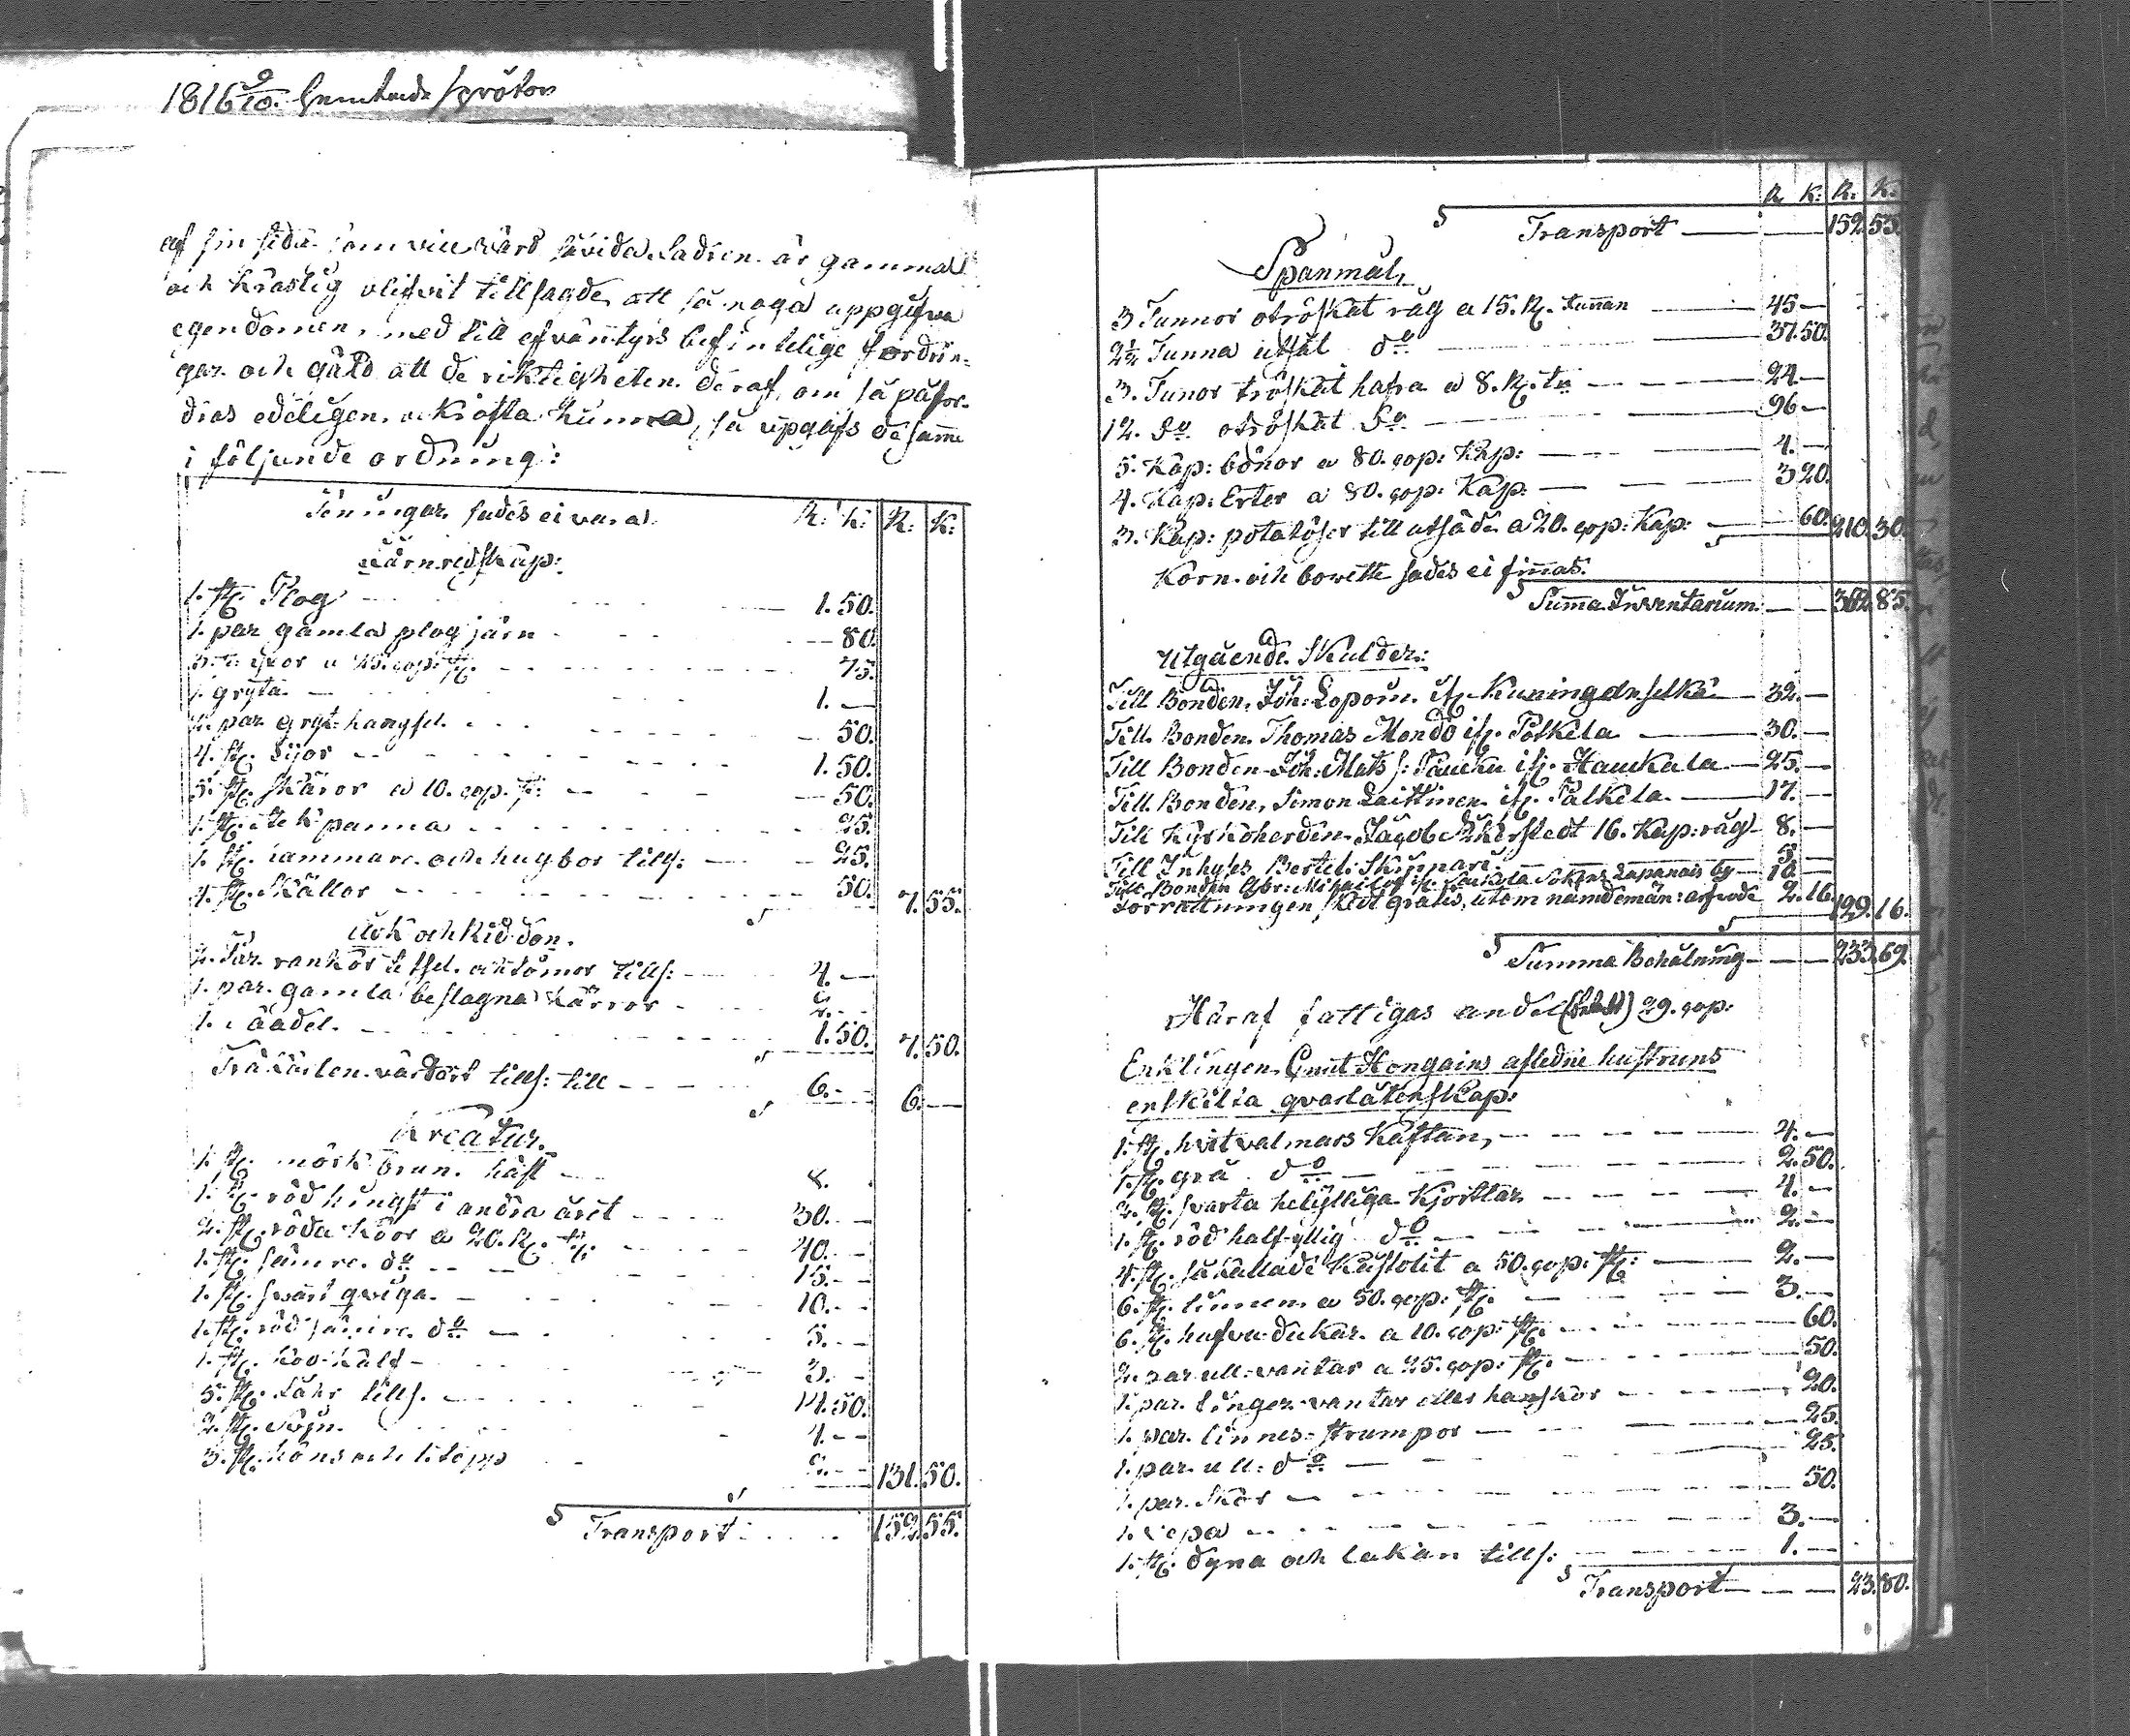 1816 9/10.
af sin sida som vice värd såvida Fadren är gammal
och bräcklig blifvit tillsagde att så noga uppgifva
egendomen, med till efventyrs befintelige fordrin-
gar och gäld att de riktigheten deraf, om så påfor-
dras edeligen bekräfta kunna, så upgafs de samme
i följande ordning:
R: K: R: K:
Peningar sades ei vara.
Järnredskap:
1. st. Plog 1. 50.
1. par gamla plog järn 80.
75.
1. gryta 1. —
2. par gryt-hangsel 50.
4. st. Lijor 1. 50.
5. st. Skäror a 10. cop. st: 50.
1. st. Stekpanna 25.
1. st. hammare och hugbor tills: 25.
4. st. Skällor 50. 7. 55.
Åok och kiddon.
2. Par rankor selar och tömor tills: 4. —
1. par gamla beslagna Kärror 2. —
1. sadel 1. 50. 7. 50.
Träkärlen värdert tills: till 6. — 6. —
Kreatur.
1. st. mörk brun häst 8.
1. st. röd hingst i andra året 30. —
2. st. röda Koor a 20. R. st. 40. —
1. st. sämre do 15. —
1. st. svart qviga 10. —
1. st. röd sämre do 5. —
1. st. koo-kalf 3. —
5. st. Fåhr tills. 14. 50.
2. st. Svijn 4. —
3. st. höns och 1. topp 2. — 131. 50.
Transport 152. 55.
R. K: R. K:
Transport 152. 55.
Spanmål,
3. Tunnor otröskat råg a 15. R. tunnan 45 —
2½ Tunna utsäl do 37. 50.
3. Tunor tröskat hafra a 8. R. tn 24 —
12. Do otröskat Do 96 —
5. Kap: bönor a 80. cop: Kap: 4. —
4. Kap: Erter a 80. cop: Kap. 3 20.
3. Kap: potatöser till utsäde a 20. cop: Kap: 60. 210. 30.
Korn och bowette sades ei finnas.
Summa Inventarium 362. 85.
Utgående Skulder:
Till Bonden, Joh: Loponi. if. Kuninganselkä 32. —
Till Bonden Thomas Mondo if. Pölkela 30. —
Till Bonden Joh: Mats s: Paucku if. Haukala 25. —
Till Bonden, Simon Laittinen if. Pälkela 17. —
Till Kyrkoherden Jacob Åkerstedt 16. Kap: råg 8. —
Till Inhyses Bertel: Skinnari 5 —
Till Bonden Gbr: Mihailof Lapanais by 10 —
Förrättningen skedt gratis, utom nämdemän: arfvode 2. 16. 129. 16.
Summa Behålning 233. 69.
Häraf fattigas andel 29. cop:
Enklingen Gnut Hongains afledne hustruns
enskilta qvarlåtenskap:
1. st. hvit valmars kaftan, 4. —
1. st. grå do 2. 50.
2. st. svarta helylliga Kjortlar 4. —
1. st. röd half-yllig do 2. —
4. st. så kallade Kustolit a 50. cop: st: 2. —
6. st. linnen a 50. cop: st. 3. —
6. st. hufvudukar a 10. cop: st. 60.
2. par ull-vantar a 25. cop: st. 50.
1. par finger-vantar eller hanskor 20.
1. par linnes-strumpor 25.
1. par ull: do 25.
1. par Skor 50.
1. 3. —
1. st. dyna och lakan tills: 1. —
Transport 23. 80.